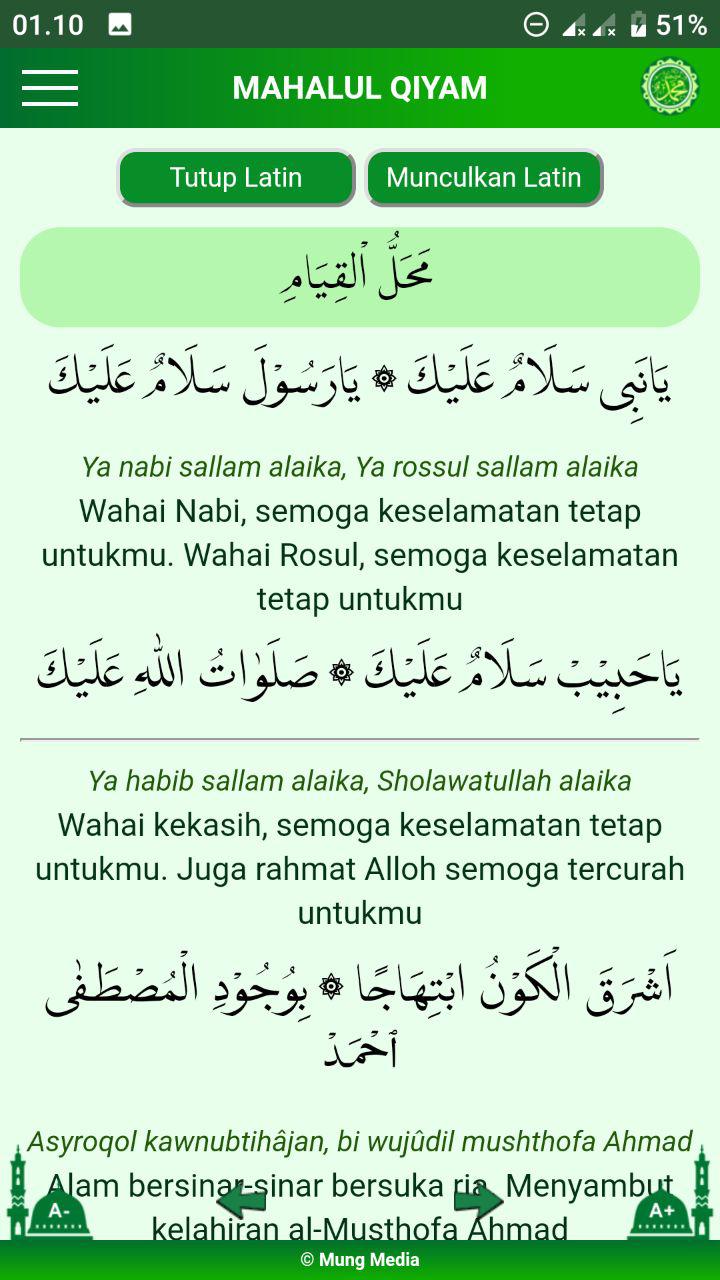 01.10 51%
MAHALUL QIYAM
Tutup Latin Munculkan Latin
مَحَلُّ ٱلْقِيَامِ
يَانَبِى سَلَامٌ عَلَيْكَ ۞ يَارَسُوْلَ سَلَامٌ عَلَيْكَ
Ya nabi sallam alaika, Ya rossul sallam alaika
Wahai Nabi, semoga keselamatan tetap
untukmu. Wahai Rosul, semoga keselamatan
tetap untukmu
يَاحَبِيْبْ سَلَامٌ عَلَيْكَ ۞ صَلَوٰاتُ اللهِ عَلَيْكَ
Ya habib sallam alaika, Sholawatullah alaika
Wahai kekasih, semoga keselamatan tetap
untukmu. Juga rahmat Alloh semoga tercurah
untukmu
اَشْرَقَ الْكَوْنُ ابْتِهَاجًا ۞ بِوُجُوْدِ الْمُصْطَفٰى
ٱحْمَدْ
Asyroqol kawnubtihâjan, bi wujûdil mushthofa Ahmad
Alam bersinar-sinar bersuka ria. Menyambut
kelahiran al-Musthofa Ahmad
A- A+
© Mung Media